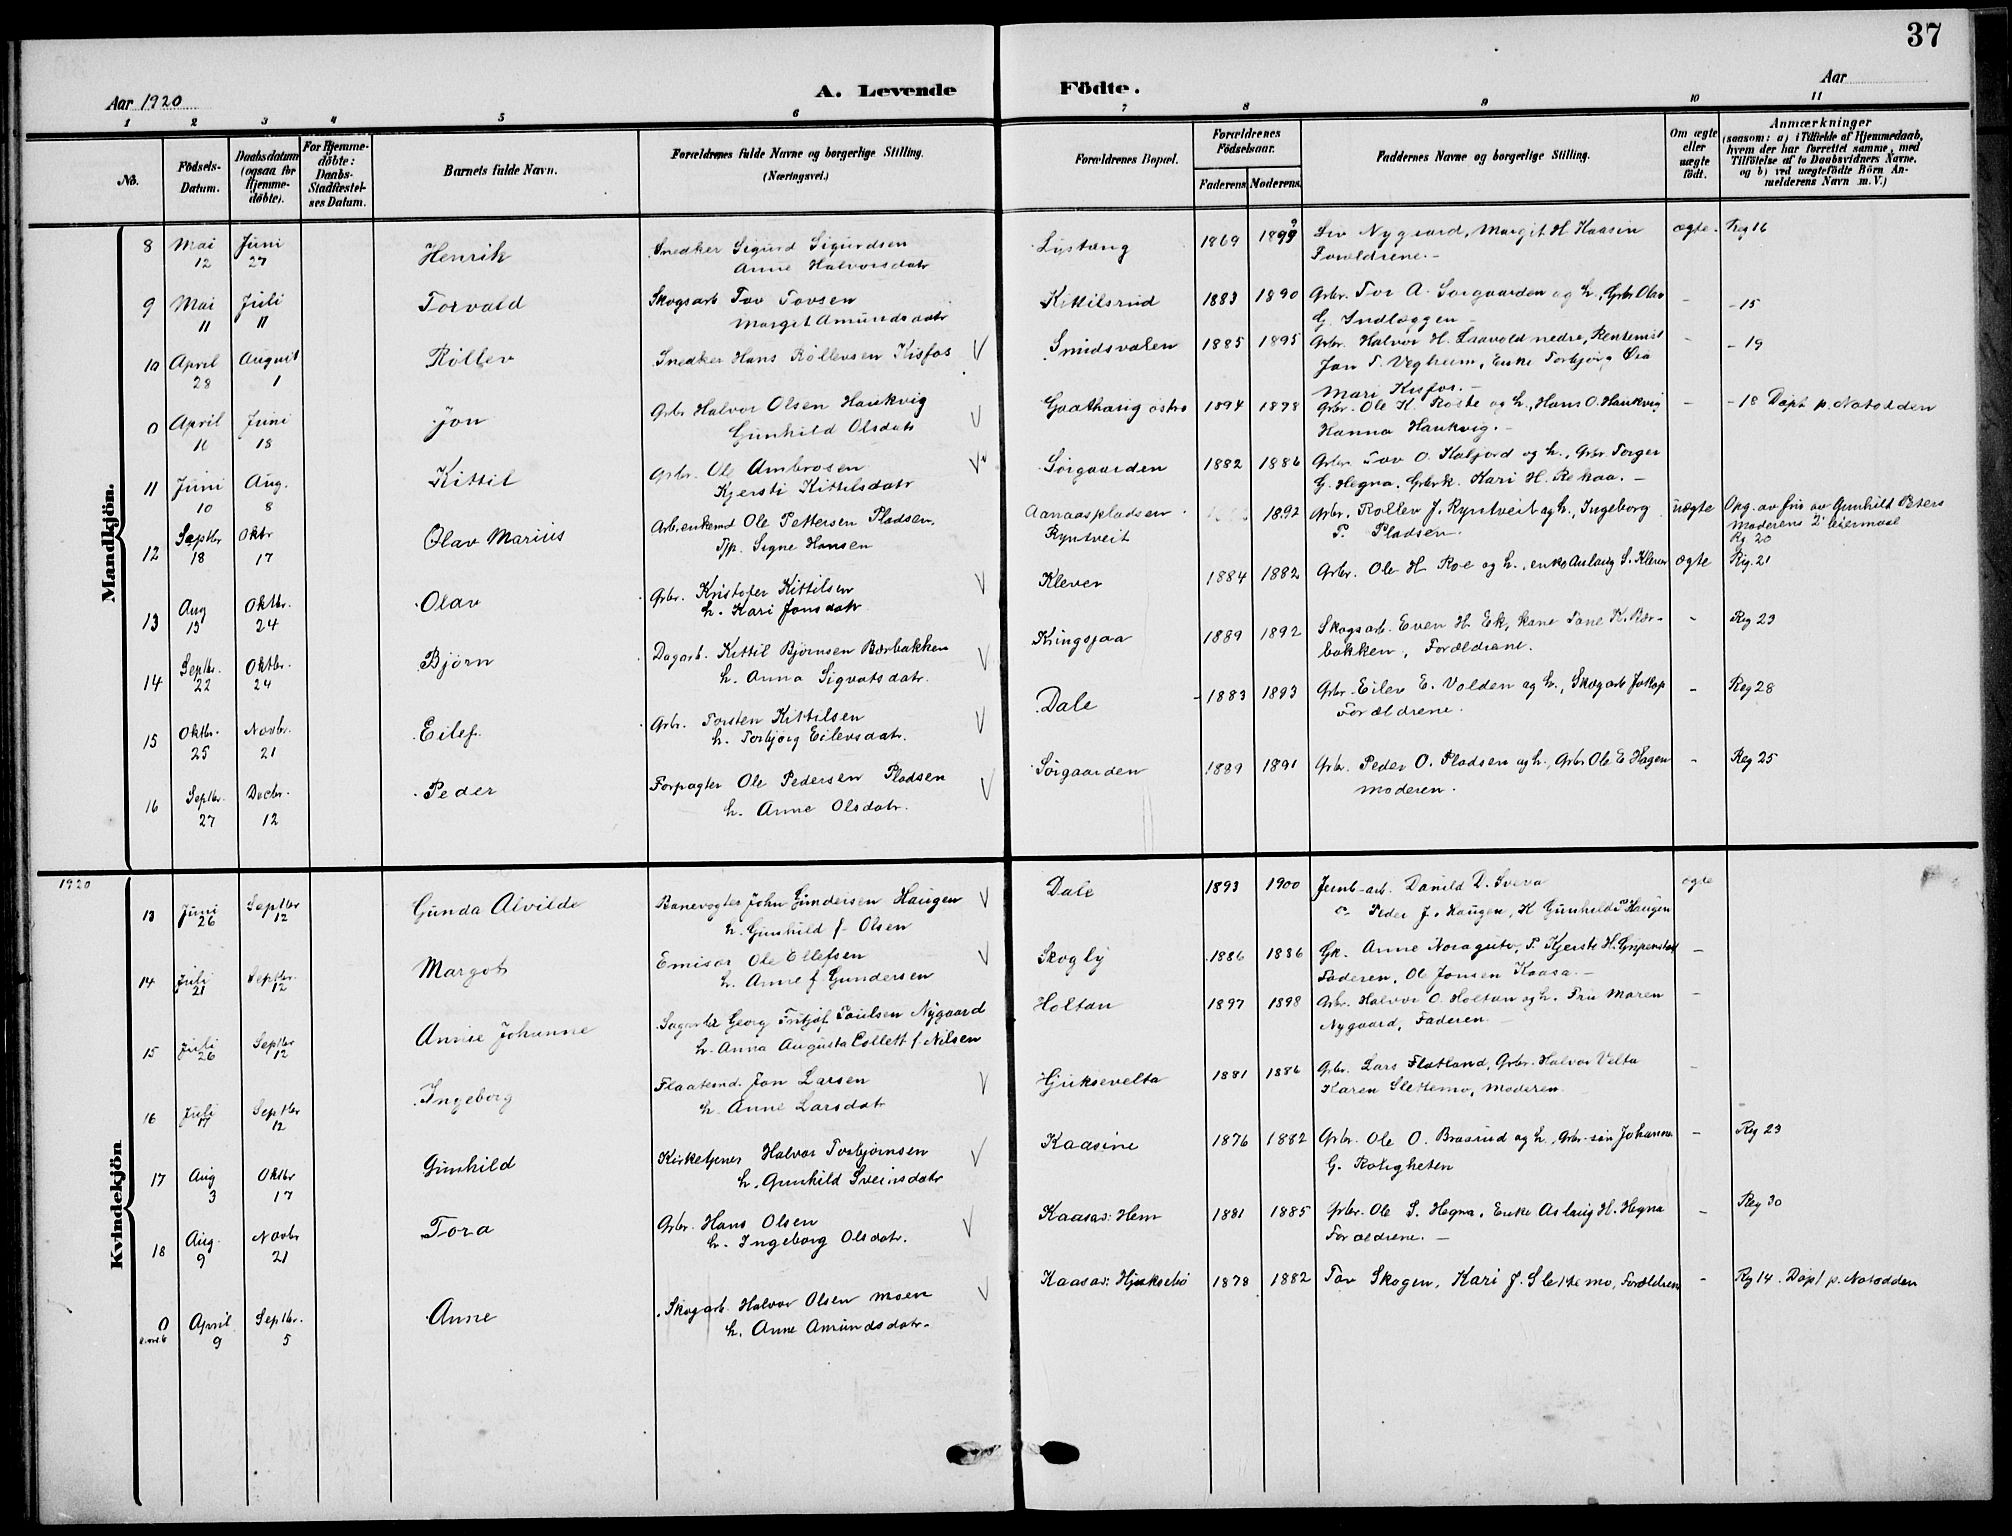 37
Aar 1920
A. Levende
Födte.
Aar
1 2 3 4 5 6 7 8 9 10 11
No.
Födsels-
Datum.
Daabsdatum
(ogsaa for
Hjemme-
døbte).
For Hjemme-
døbte:
Daabs-
Stadfæstel-
ses Datum.
Barnets fulde Navn.
Forældrenes fulde Navne og borgerlige Stilling.
(Næringsvei.)
Forældrenes Bopæl.
Forældrenes
Födselsaar.
Faderens.
Moderens.
Faddernes Navne og borgerlige Stilling.
Om ægte
eller
uægte
födt.
Anmærkninger
(saasom: a) i Tilfælde af Hjemmedaab,
hvem der har forrettet samme, med
Tilföielse af to Daabsvidners Navne,
og b) ved uægtefödte Börn An-
melderens Navn m. V.)
Mandkjön.
8 Mai 12 Juni 27 Henrik Snedker Sigurd Sigurdsen
Anne Halvorsdatr
Lystang 1869 1899 Siv Nygaard, Margit H Kaasin
Forældrene.-
ægte. Reg 16
9 Mai 11 Juli 11 Torvald Skogsarb Tov Tovsen
Margit Amundsdatr
Kittilsrud 1883 1890 Grbr. Tor A. Sørgaarden og h., Grbr Olav
G. Indlæggen -
- - 15
10 April 28 August 1 Røllev Snedker Hans Røllevsen Kisfos
Smidsvalen 1885 1895 Grbr. Halvor H. Laavold nedre, Rentenist
Jon T. Vegheim, Enke Torbjørg Øia
Mari Kisfos.-
- - 19
0 April 16 Juni 18 Jon Grbr Halvor Olsen Haukvig
Gunhild Olsdatr
Gaathaug østre 1894 1898 Grbr. Ole H. Roste og h., Hans O. Haukvig
Hanna Haukvig.-
- - 18 Døpt p. Notodden
11 Juni 10 Aug. 8 Kittil Grbr. Ole Ambrosen
Kjersti Kittilsdatr
Sørgaarden 1882 1886 Grbr. Tov O. Kaljord og h., Grbr Torger
G. Hegna, Grbrk. Kari H. Rekaa. -
12 Septbr 18 Oktbr 17 Olav Marius Arb. enkemd Ole Pettersen Pladsen,
Tjp. Signe Hansen
Aanaaspladsen
Ryntveit
1892 Grbr. Rollev J. Ryntveit og h., Ingeborg
P. Pladsen.
uægte Opg. av fru av Gunhild Peters
Moderens 2' leiermaal
Rg 20
13 Aug 13 Oktbr. 24 Olav Grbr. Kristofer Kittilsen
h. Kari Jonsdatr
Klever 1884 1882 Grbr. Ole H. Roe og h., enke Aslaug S. Klever ægte Rig. 21
14 Septbr. 22 Oktbr. 24 Bjørn Dagarb. Kittil Bjørnsen Bærbakken
h. Anna Sigvatsdatr.
Kringsjaa 1889 1892 Skogsarb. Even H. Ek, kone Tone K. Bær-
bakken, Forældrene.
- Reg 23
15 Oktbr. 25 Novbr. 21 Eilef. Grbr. Torsten Kittilsen
h. Torbjørg Eilevsdatr.
Dale 1883 1893 Grbr. Eilev E. Volden og h., Skogarb Jakop
Forældrene.
- Reg 28
16 Septbr. 27 Decbr. 12 Peder Forpagter Ole Pedersen Pladsen
h. Anne Olsdatr.
Sørgaarden 1889 1891 Grbr. Peder O. Pladsen og h., Grbr Ole E Hagen
moderen.
- Reg 25
1920
Kvindekjön
13 Juni 26 Septbr 12 Gunda Alvilde Banevogter John Gundersen Haugen
h. Gunhild f. Olsen
Dale 1893 1900 Jernb-arb. Danild D. Sveva
Peder J. Haugen, K Gunhild P Haugen
ægte
14 Juli 21 Septbr. 12 Margot Emisær Ole Ellefsen
h. Anne f Gundersen
Skogly 1886 1886 Gk. Anne Noragutu, P. Kjersti H. Gripenstad
Faderen, Ole Jonsen Kaasa.-
-
15 Juli 26 Septbr 12 Annie Johanne Sagarbr Georg Fritjof Paulsen Nygaard
h. Anna Augusta Collett f. Nilsen
Holtan 1897 1898 Grbr. Halvor O. Holtan og h. Fru Maren
Nygaard, Faderen.
-
16 Juli 17 Septbr 12 Ingeborg Flaatemd. Jon Larsen
h. Anne Larsdatr
Hjuksevelta 1881 1886 Grbr. Lars Flatland, Grbr. Halvor Velta
Karen Slettemo, Moderen
-
17 Aug 3 Oktbr 17 Gunhild Kirketjener Halvor Torbjørnsen
h. Gunhild Sveinsdatr
Kaasine 1876 1882 Grbr. Ole O. Braarud og h., Grbr-søn Johannes
G. Roligheten
- Reg 23
18 Aug. 9 Novbr 21 Tora Grbr. Hans Olsen
h. Ingeborg Olsdatr.
Kaasas: Hem 1881 1885 Grbr. Ole S. Hegna, Enke Aslaug H. Hegna
Forældrene. -
- Reg 30
0 April 9 Septbr. 5 Anne Skogarb. Halvor Olsen Moen
h. Anne Amundsdatr.
Kaasas: Hjuksebø 1878 1882 Tov Skogen, Kari J. Slettemo, Forældrene
- Rg 14. Døpt p. Notodden